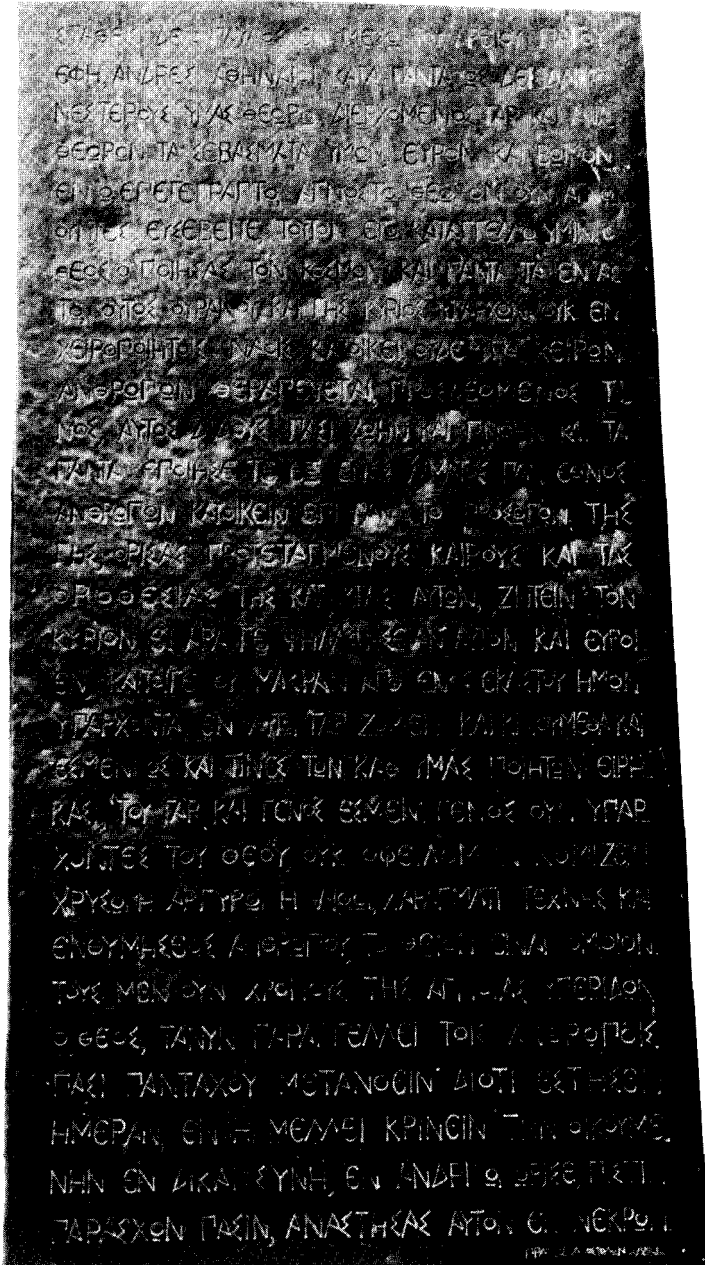 ΣΤΑΘΕΙΣ ΔΕ Ο ΠΑΥΛΟΣ ΕΝ ΜΕΣΩ ΤΟΥ ΑΡΕΙΟΥ ΠΑΓΟΥ
ΕΦΗ, ΑΝΔΡΕΣ ΑΘΗΝΑΙΟΙ, ΚΑΤΑ ΠΑΝΤΑ ΩΣ ΔΕΙΣΙΔΑΙΜΟ
ΝΕΣΤΕΡΟΥΣ ΥΜΑΣ ΘΕΩΡΩ. ΔΙΕΡΧΟΜΕΝΟΣ ΓΑΡ ΚΑΙ ΑΝΑ
ΘΕΩΡΩΝ ΤΑ ΣΕΒΑΣΜΑΤΑ ΥΜΩΝ ΕΥΡΟΝ ΚΑΙ ΒΩΜΟΝ
ΕΝ Ω ΕΠΕΓΕΓΡΑΠΤΟ, ΑΓΝΩΣΤΩ ΘΕΩ. ΟΝ ΟΥΝ ΑΓΝΟ
ΟΥΝΤΕΣ ΕΥΣΕΒΕΙΤΕ ΤΟΥΤΟΝ ΕΓΩ ΚΑΤΑΓΓΕΛΛΩ ΥΜΙΝ. Ο
ΘΕΟΣ Ο ΠΟΙΗΣΑΣ ΤΟΝ ΚΟΣΜΟΝ ΚΑΙ ΠΑΝΤΑ ΤΑ ΕΝ ΑΥ
ΤΩ, ΟΥΤΟΣ ΟΥΡΑΝΟΥ ΚΑΙ ΓΗΣ ΚΥΡΙΟΣ ΥΠΑΡΧΩΝ, ΟΥΚ ΕΝ
ΧΕΙΡΟΠΟΙΗΤΟΙΣ ΝΑΟΙΣ ΚΑΤΟΙΚΕΙ, ΟΥΔΕ ΥΠΟ ΧΕΙΡΩΝ
ΑΝΘΡΩΠΩΝ ΘΕΡΑΠΕΥΕΤΑΙ, ΠΡΟΣΔΕΟΜΕΝΟΣ ΤΙ
ΝΟΣ, ΑΥΤΟΣ ΔΙΔΟΥΣ ΠΑΣΙ ΖΩΗΝ ΚΑΙ ΠΝΟΗΝ ΚΑΙ ΤΑ
ΠΑΝΤΑ. ΕΠΟΙΗΣΕ ΤΕ ΕΞ ΕΝΟΣ ΑΙΜΑΤΟΣ ΠΑΝ ΕΘΝΟΣ
ΑΝΘΡΩΠΩΝ ΚΑΤΟΙΚΕΙΝ ΕΠΙ ΠΑΝ ΤΟ ΠΡΟΣΩΠΟΝ ΤΗΣ
ΓΗΣ, ΟΡΙΣΑΣ ΠΡΟΤΕΤΑΓΜΕΝΟΥΣ ΚΑΙΡΟΥΣ ΚΑΙ ΤΑΣ
ΟΡΟΘΕΣΙΑΣ ΤΗΣ ΚΑΤΟΙΚΙΑΣ ΑΥΤΩΝ, ΖΗΤΕΙΝ ΤΟΝ
ΚΥΡΙΟΝ ΕΙ ΑΡΑ ΓΕ ΨΗΛΑΦΗΣΕΙΑΝ ΑΥΤΟΝ ΚΑΙ ΕΥΡΟΙ
ΕΝ, ΚΑΙΤΟΙΓΕ ΟΥ ΜΑΚΡΑΝ ΑΠΟ ΕΝΟΣ ΕΚΑΣΤΟΥ ΗΜΩΝ
ΥΠΑΡΧΟΝΤΑ. ΕΝ ΑΥΤΩ ΓΑΡ ΖΩΜΕΝ ΚΑΙ ΚΙΝΟΥΜΕΘΑ ΚΑΙ
ΕΣΜΕΝ, ΩΣ ΚΑΙ ΤΙΝΕΣ ΤΩΝ ΚΑΘ ΥΜΑΣ ΠΟΙΗΤΩΝ ΕΙΡΗ
ΚΑΣΙ, ΤΟΥ ΓΑΡ ΚΑΙ ΓΕΝΟΣ ΕΣΜΕΝ. ΓΕΝΟΣ ΟΥΝ ΥΠΑΡ
ΧΟΝΤΕΣ ΤΟΥ ΘΕΟΥ ΟΥΚ ΟΦΕΙΛΟΜΕΝ ΝΟΜΙΖΕΙΝ
ΧΡΥΣΩ Η ΑΡΓΥΡΩ Η ΛΙΘΩ, ΧΑΡΑΓΜΑΤΙ ΤΕΧΝΗΣ ΚΑΙ
ΕΝΘΥΜΗΣΕΩΣ ΑΝΘΡΩΠΟΥ, ΤΟ ΘΕΙΟΝ ΕΙΝΑΙ ΟΜΟΙΟΝ.
ΤΟΥΣ ΜΕΝ ΟΥΝ ΧΡΟΝΟΥΣ ΤΗΣ ΑΓΝΟΙΑΣ ΥΠΕΡΙΔΩΝ
Ο ΘΕΟΣ, ΤΑΝΥΝ ΠΑΡΑΓΓΕΛΛΕΙ ΤΟΙΣ ΑΝΘΡΩΠΟΙΣ
ΠΑΣΙ ΠΑΝΤΑΧΟΥ ΜΕΤΑΝΟΕΙΝ ΔΙΟΤΙ ΕΣΤΗΣΕΝ
ΗΜΕΡΑΝ, ΕΝ Η ΜΕΛΛΕΙ ΚΡΙΝΕΙΝ ΤΗΝ ΟΙΚΟΥΜΕ
ΝΗΝ ΕΝ ΔΙΚΑΙΟΣΥΝΗ, ΕΝ ΑΝΔΡΙ Ω ΩΡΙΣΕ, ΠΙΣΤΙΝ
ΠΑΡΑΣΧΩΝ ΠΑΣΙΝ, ΑΝΑΣΤΗΣΑΣ ΑΥΤΟΝ ΕΚ ΝΕΚΡΩΝ